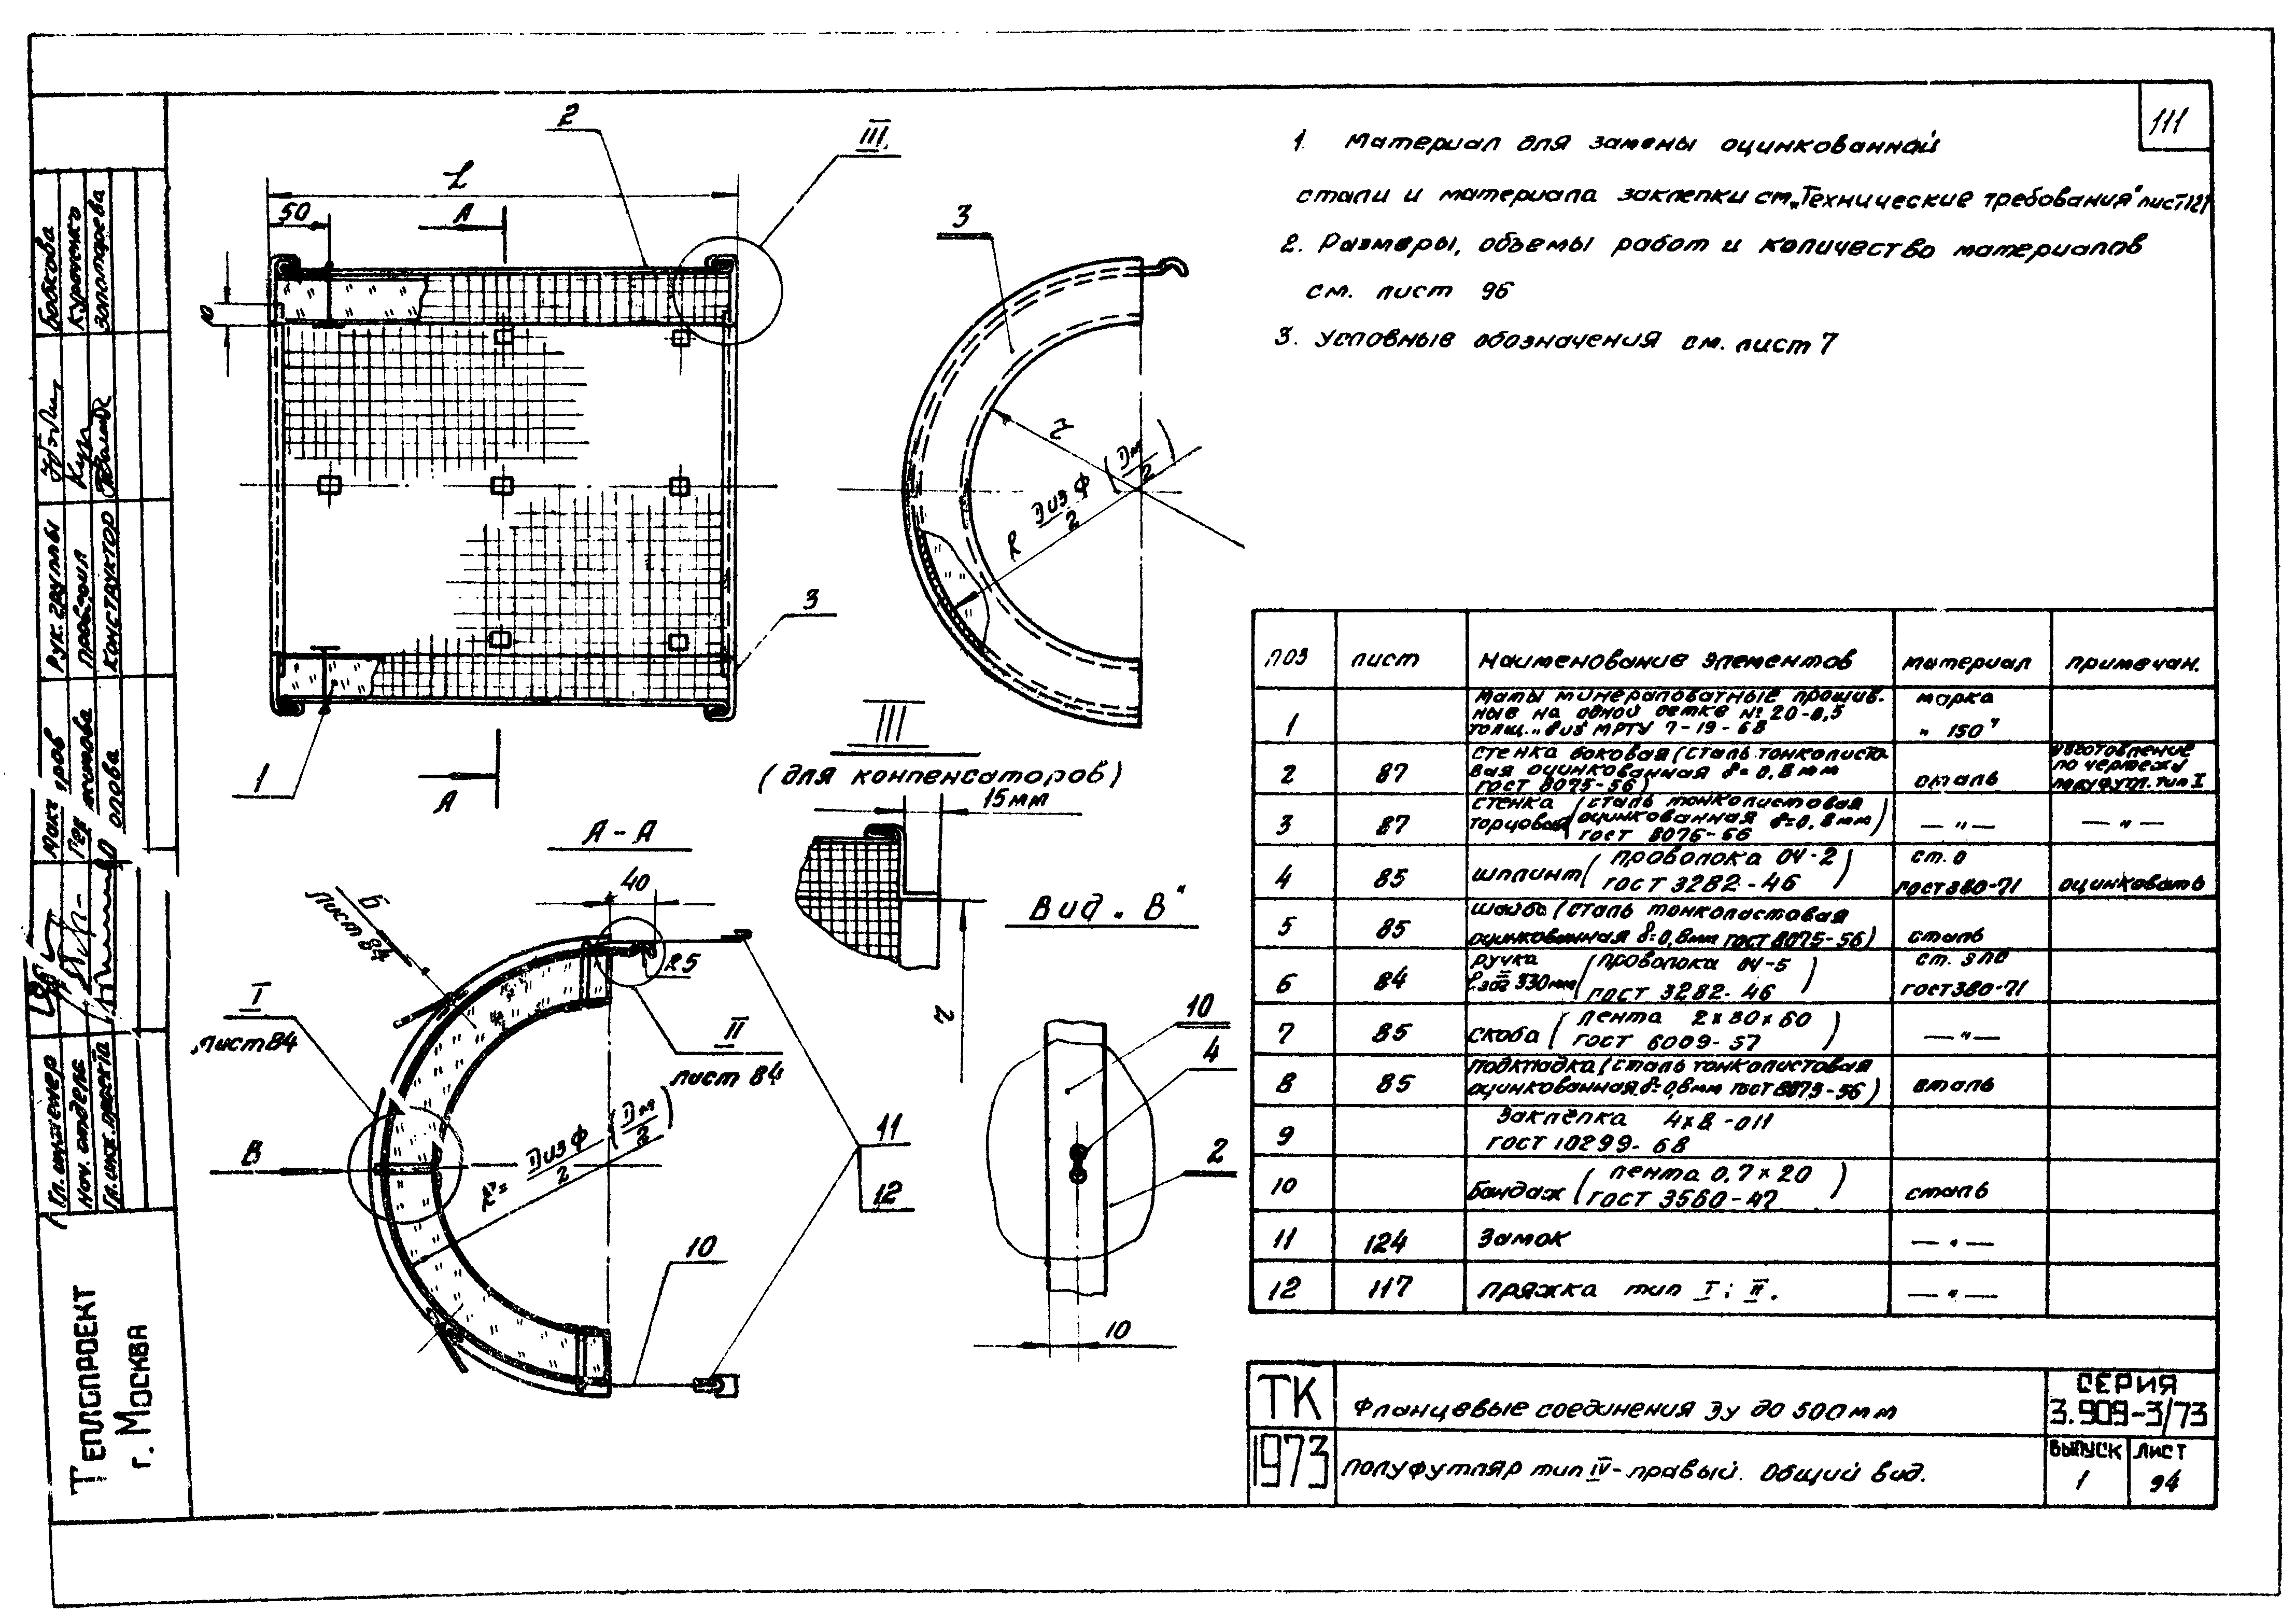 111
1. Материал для замены оцинкованной
стали и материала заклепки см. „Технические требования" лист 121
2. Размеры, объемы работ и количество материалов
см. лист 96
3. Условные обозначения см. лист 7
2
III
L
50
А
3
R
Dиз ф
2
(Dн
2)
3
1
А
III
(для компенсаторов)
15мм
А-А
40
Б
лист 84
25
I
лист 84
II
лист 84
Вид „В"
10
4
2
В
R= Dиз ф
2
(Dн
2)
11
12
10
10
поз лист Наименование элементов материал примечан.
1 Маты минераловатные прошив-
ные на одной сетке № 20-0,5
толщ. „биз МРТУ 7-19-68
марка
„150"
2 87 стенка боковая (сталь тонколисто-
вая оцинкованная δ=0,8мм
гост 8075-56)
сталь
изготовление
по чертежу
полуфутл. тип I
3 87 стенка торцовая (сталь тонколистовая
оцинкованная δ=0,8мм)
гост 8075-56
— " — — " —
4 85 шплинт (проволока ОЧ-2)
гост 3282-46
ст. 0
гост 380-71
оцинковать
5 85 шайба (сталь тонколистовая
оцинкованная δ=0,8мм гост 8075-56)
сталь
6 84 ручка (проволока ОЧ-5)
ℓзаг = 330мм гост 3282-46
гост 380-71
7 85 скоба (лента 2х30х60)
гост 6009-57
— " —
8 85 подкладка (сталь тонколистовая
оцинкованная δ=0,8мм гост 8075-56)
сталь
9 Заклёпка 4х8-011
гост 10299-68
10 бандаж (лента 0,7х20)
гост 3560-47
сталь
11 124 Замок — " —
12 117 пряжка тип I; II. — " —
ТК
1973
Фланцевые соединения Ду до 500мм
Полуфутляр тип IV-правый. Общий вид.
СЕРИЯ
3.909-3/73
ВЫПУСК ЛИСТ
1 94
Теплопроект
г. Москва
Гл. инженер
Нач. отдела
Гл. инж. проекта
Рук. группы
Проверил
Конструктор
Бобкова